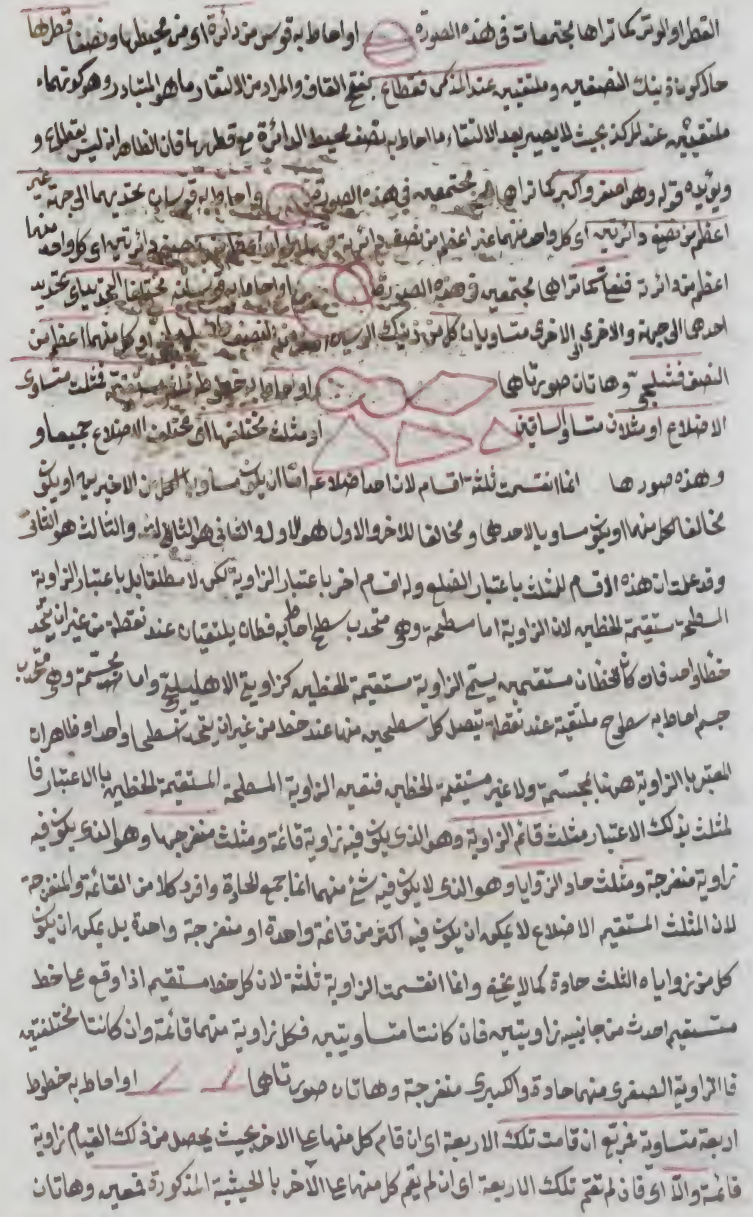 القطر او الوتر كما تراها مجتمعات فى هذه الصورة او احاط به قوس من دائرة اى من محيطها ونصفا قطرها
حال كون ذينك النصفين ملتقيين عند المركز فقطاع بفتح القاف والمراد من الالتقاء ما هو المتبادر وهو كونهما
ملتقيين عند المركز بحيث لا يصير بعد الالتقاء ما احاط به نصف محيط الدائرة مع قطرها فان الظاهر انه ليس بقطاع و
ويؤيده قوله وهو اصغر واكبر كما تراهما مجتمعين فى هذه الصورة او احاط به قوسان تحديبهما الى جهة غير
اعظم من نصفى دائرتين اى كل واحد منهما غير اعظم من نصف دائرته فهلالى او اعظم من نصفى دائرتين اى كل واحد منهما
اعظم من دائرته فنعلى كما تراهما مجتمعين فى هذه الصورة او احاط به قوسان مختلفا التحديب اى تحديب
احدهما الى جهة والاخرى الى الاخرى متساويان كل من ذينك القوسين اصغر من النصف فاهليلجى او كل منهما اعظم من
النصف فشلجمى وهاتان صورتاهما او احاط به خطوط ثلثة مستقيمة فمثلث متساوى
الاضلاع او مثلث متساوى الساقين او مثلث مختلفها اى مختلف الاضلاع جميعا و
وهذه صورها انما انقسمت ثلثة اقسام لان احد اضلاعه اما ان يكون مساويا لكل من الاخيرين او يكون
مخالفا لكل منهما او يكون مساويا لاحدهما ومخالفا للاخر والاول هو الاول والثانى هو الثالث والثالث هو الثانى
وقد علمت ان هذه الاقسام للمثلث باعتبار الضلع وله اقسام اخر باعتبار الزاوية لكن لا مطلقا بل باعتبار الزاوية
المسطحة مستقيمة الخطين لان الزاوية اما مسطحة وهى متحدب سطح احاط به خطان يلتقيان عند نقطة من غير ان يتحد
خطا واحدا فان كان الخطان مستقيمين يسمى الزاوية مستقيمة الخطين كزاويتى الاهليلجى واما مجسمة وهى متحدب
جسم احاط به سطوح ملتقية عند نقطة يتصل كل سطحين منها عند خط من غير ان يتحد سطحا واحدا وظاهر ان
المعتبر بالزاوية ههنا مجسمة ولا غير مستقيمة الخطين فتعين الزاوية المسطحة المستقيمة الخطين بالاعتبار فا
لمثلث بذلك الاعتبار مثلث قائم الزاوية وهو الذى يكون فيه زاوية قائمة ومثلث منفرجها وهو الذى يكون فيه
زاوية منفرجة ومثلث حاد الزوايا وهو الذى لا يكون فيه شئ منهما انما جمع الحادة وافرد كلا من القائمة والمنفرجة
لان المثلث المستقيم الاضلاع لا يمكن ان يكون فيه اكثر من قائمة واحدة او منفرجة واحدة بل يمكن ان يكون
كل من زواياه الثلث حادة كما لا يخفى وانما انقسمت الزاوية ثلثة لان كل خط مستقيم اذا وقع على خط
مستقيم احدث من جانبيه زاويتين فان كانتا متساويتين فكل زاوية منهما قائمة وان كانتا مختلفتين
فالزاوية الصغرى منهما حادة والكبرى منفرجة وهاتان صورتاهما او احاط به خطوط
اربعة متساوية فمربع ان قامت تلك الاربعة اى ان قام كل منها على الاخر بحيث يحصل من ذلك القيام زاوية
قائمة والا اى فان لم تقم تلك الاربعة اى ان لم يقم كل منها على الآخر بالحيثية المذكورة فمعين وهاتان